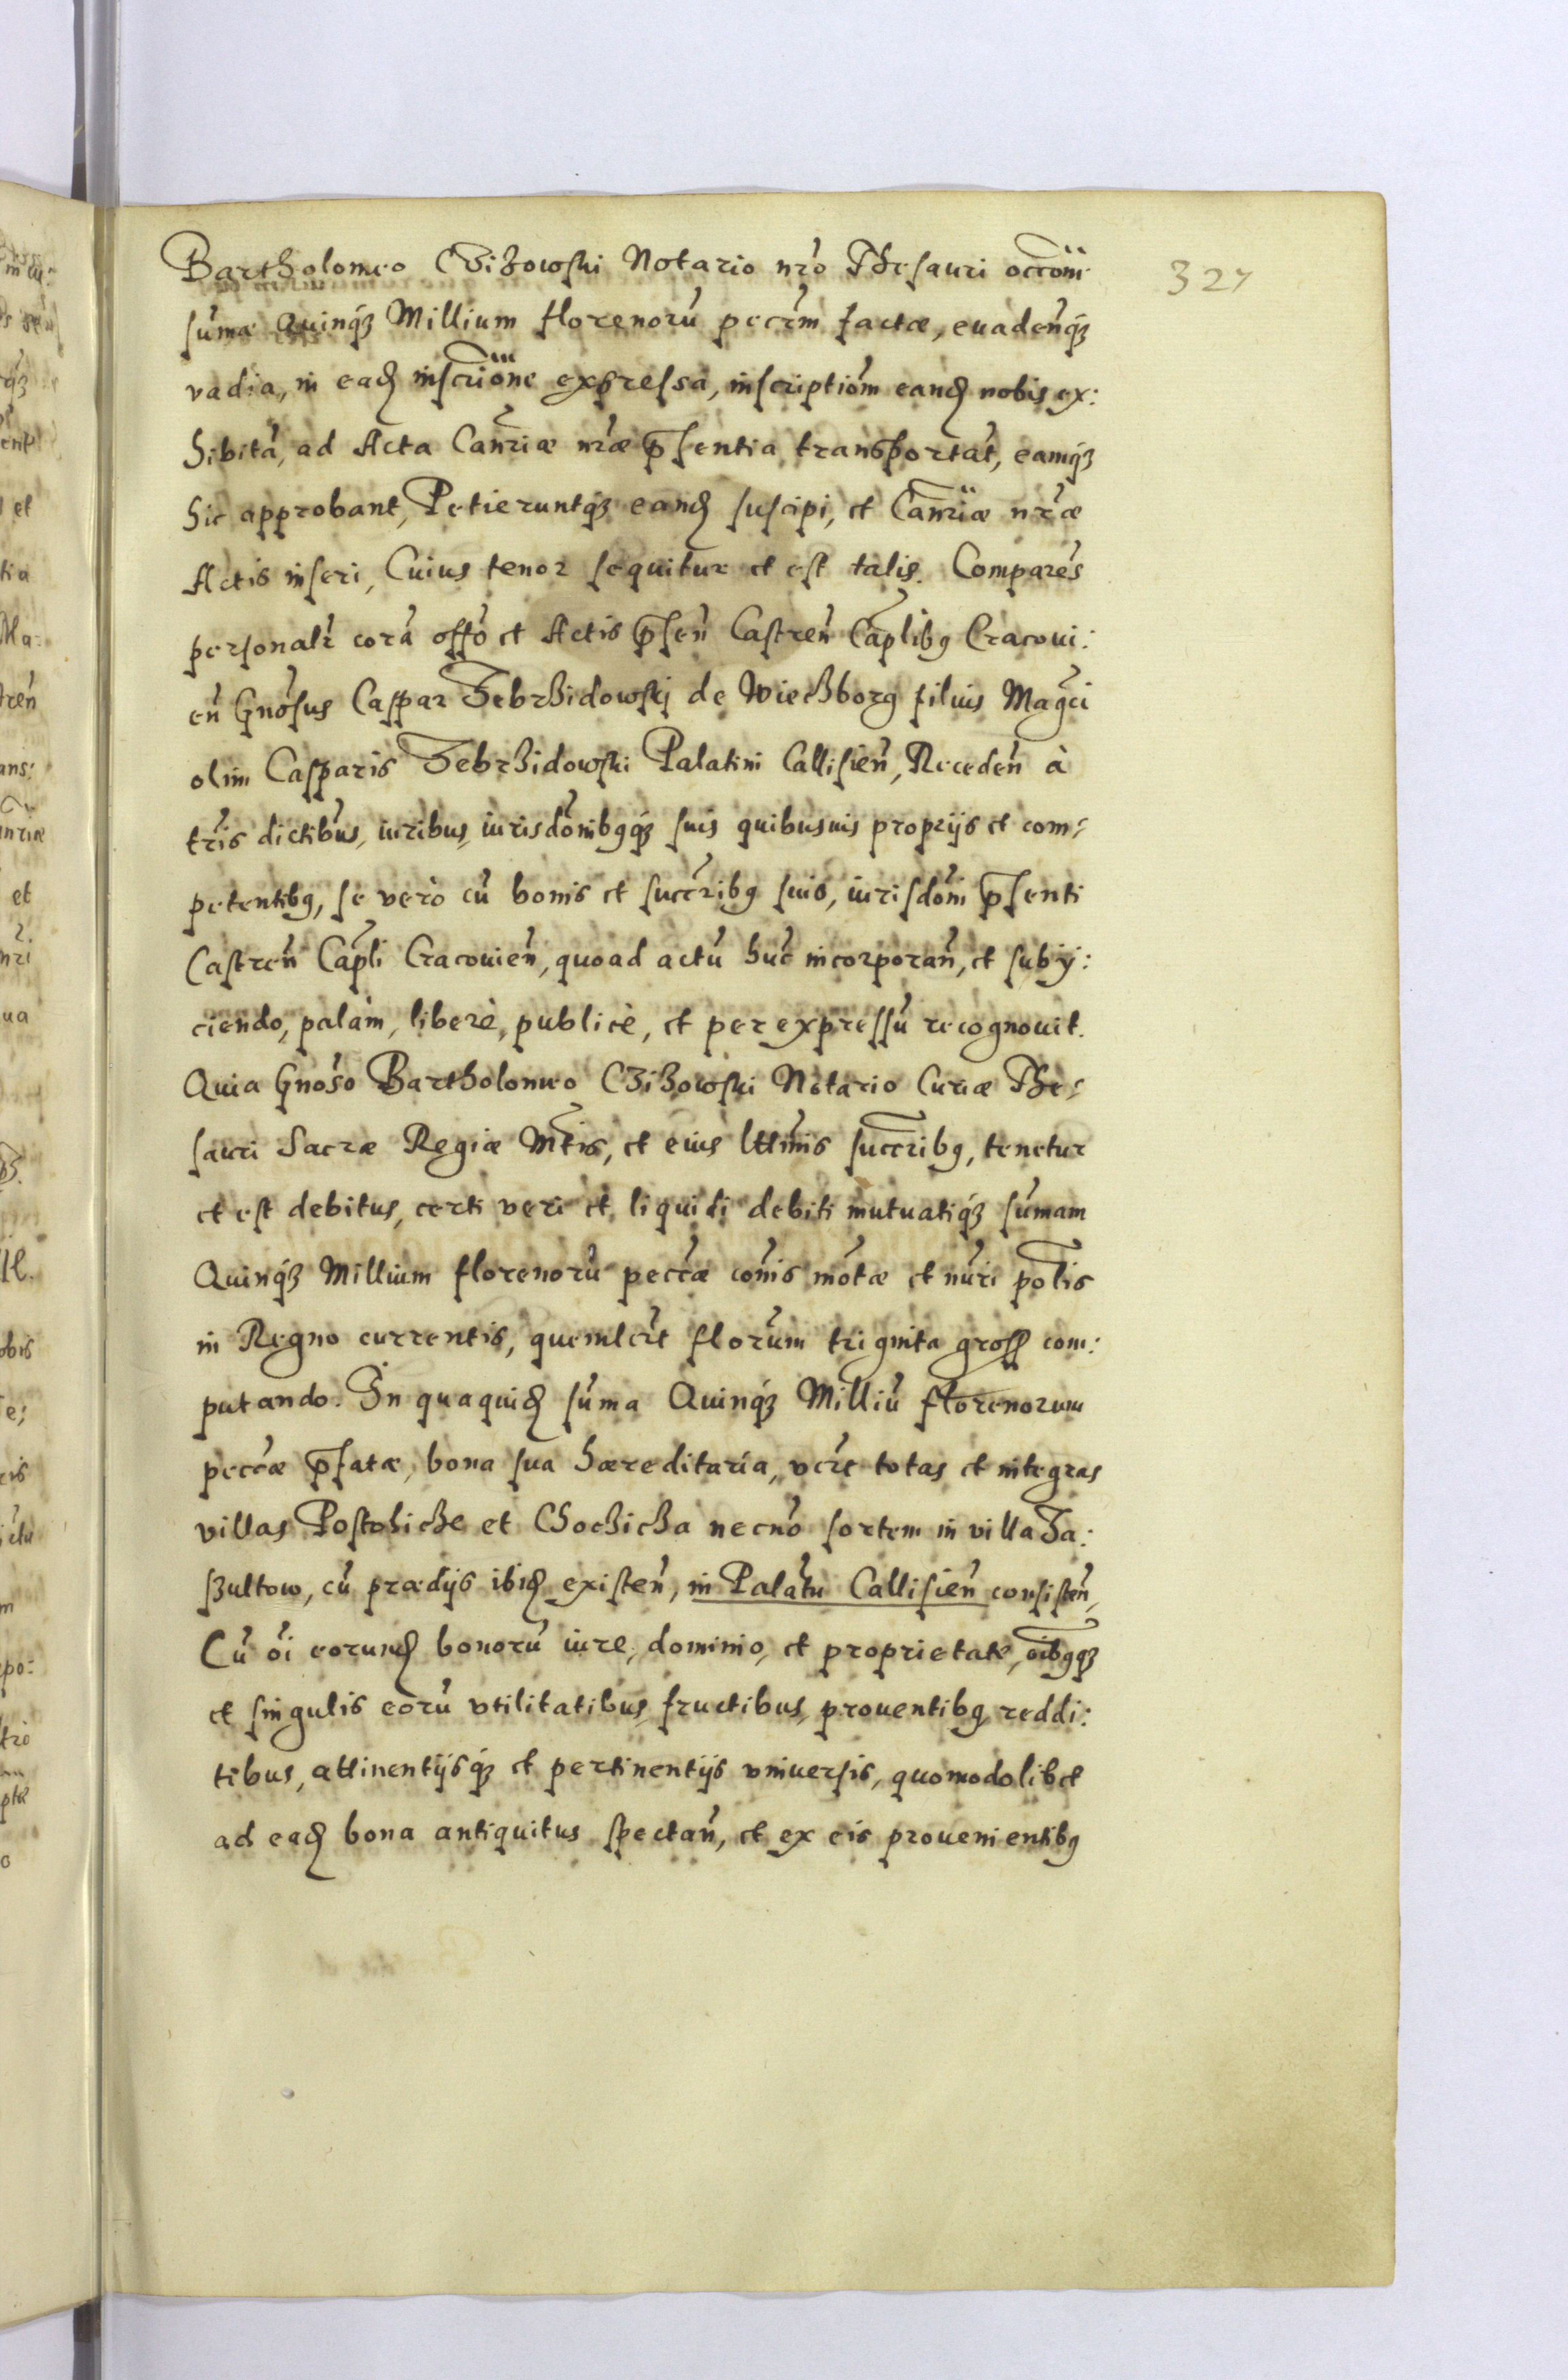 Bartholomeo Czizowski Notario nr̃o Thesauri occõne 327
sum̃a Quinq́ꝫ Millium florenorũ pecũm factæ, euadenq́ꝫ
vadia, in eadẽ inscriõne expressa, inscriptiõm eandẽ nobis ex:
hibitã, ad Acta Canr̃iæ nr̃æ p̃sentia, transportãt, eamq́ꝫ
hic approbant, Petieruntq́ꝫ eandẽ suscipi, et Canr̃iæ nr̃æ
Actis inseri, Cuius tenor sequitur et est talis. Comparẽs
personalr̃ corã offõ et Actis p̃señ Castreñ Cap̃libꝰ Cracoui:
eñ Gnõsus Caspar Zebrzidowskj de Wieczborg filius Mag̃ci
olim Casparis Zebrzidowski Palatini Callisieñ, Recedeñ à
tr̃is dictibus, iuribus, iurisdõnibꝰq́ꝫ suis quibusuis proprijs et com:
petentibꝰ, se verò cũ bonis et succr̃ibꝰ suis, iurisdõni p̃senti
Castreñ Cap̃li Cracouieñ, quoad actũ hũc incorporañ, et subij:
ciendo, palàm, liberè, publicè, et per expressũ recognouit.
Quia Gnõso Bartholomeo Czizowski Notario Curiæ The:
sauri Sacræ Regiæ Mtĩs, et eius lttĩmis succr̃ibꝰ, tenetur
et est debitus, certi veri et liquidi debiti mutuatiq́ꝫ sum̃am
Quinq́ꝫ Millium florenorũ peccæ̃ com̃is mõtæ et num̃ri polĩs
in Regno currentis, quemlib̃t florũm triginta gross̃ com:
putando. In quaquidẽ sum̃a Quinq́ꝫ Milliũ florenorum
peccæ̃ p̃fatæ, bona sua hæreditaria, vidẽlt totas et integras
villas Postoliche et Chochicza necnõ sortem in villa Za:
szultow, cũ prædijs ibidẽ existeñ, in Palãtu Callisieñ consisteñ,
Cũ oĩ eorundẽ bonorũ iure, dominio, et proprietate, oĩbꝰq́ꝫ
et singulis eorũ vtilitatibus, fructibus, prouentibꝰ, reddi:
tibus, attinentijsq́ꝫ et pertinentijs vniuersis, quomodolibet
ad eadẽ bona antiquitus spectañ, et ex eis prouenientibꝰ